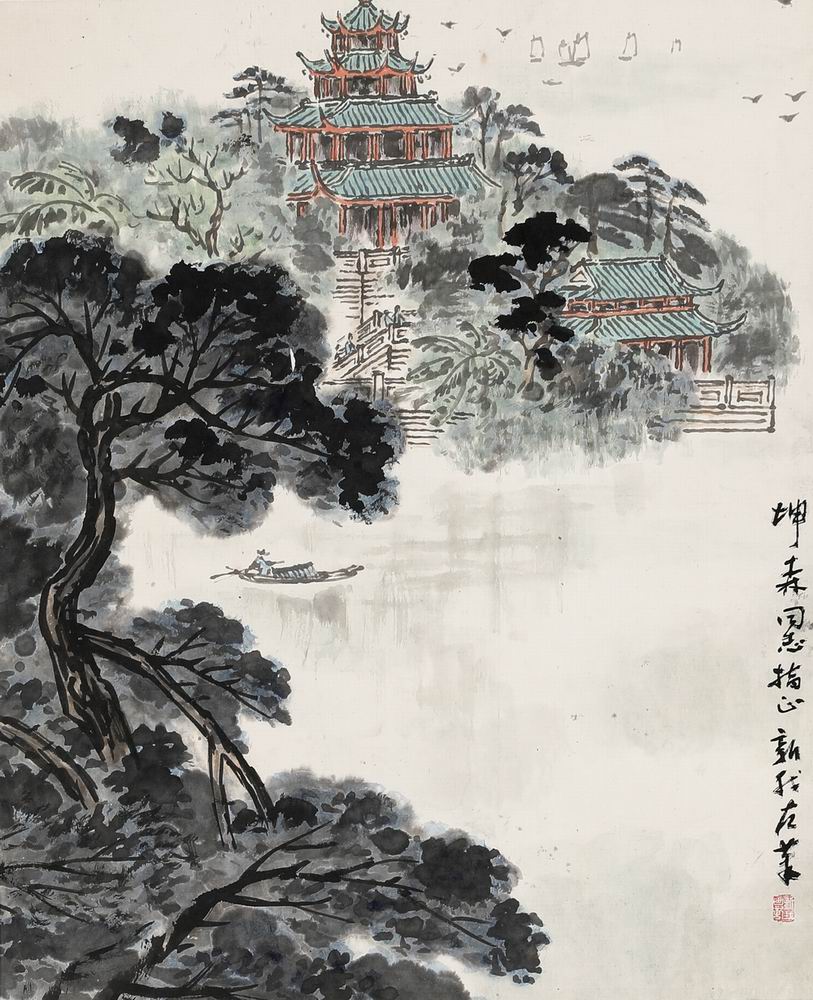 坤森同志指正 新我左筆